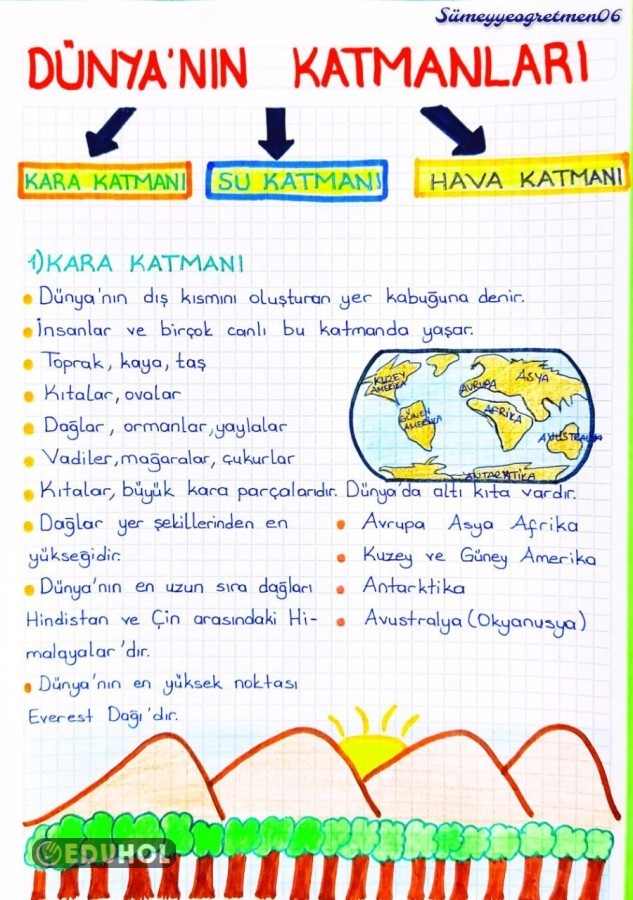 Sümeyyeogretmen06
DÜNYA'NIN KATMANLARI
KARA KATMANI
SU KATMANI
HAVA KATMANI
1)KARA KATMANI
Dünya'nın dış kısmını oluşturan yer kabuğuna denir.
İnsanlar ve birçok canlı bu katmanda yaşar.
Toprak, kaya, taş
Kıtalar, ovalar
Dağlar, ormanlar, yaylalar
Vadiler, mağaralar, çukurlar
KUZEY AMERİKA
GÜNEY AMERİKA
AVRUPA
ASYA
AFRİKA
AVUSTRALYA
ANTARTİKA
Kıtalar, büyük kara parçalarıdır. Dünya'da altı kıta vardır.
Dağlar yer şekillerinden en
yükseğidir.
Dünya'nın en uzun sıra dağları
Hindistan ve Çin arasındaki Hi-
malayalar'dır.
Dünya'nın en yüksek noktası
Everest Dağı'dır.
Avrupa Asya Afrika
Kuzey ve Güney Amerika
Antarktika
Avustralya (Okyanusya)
EDUHOL